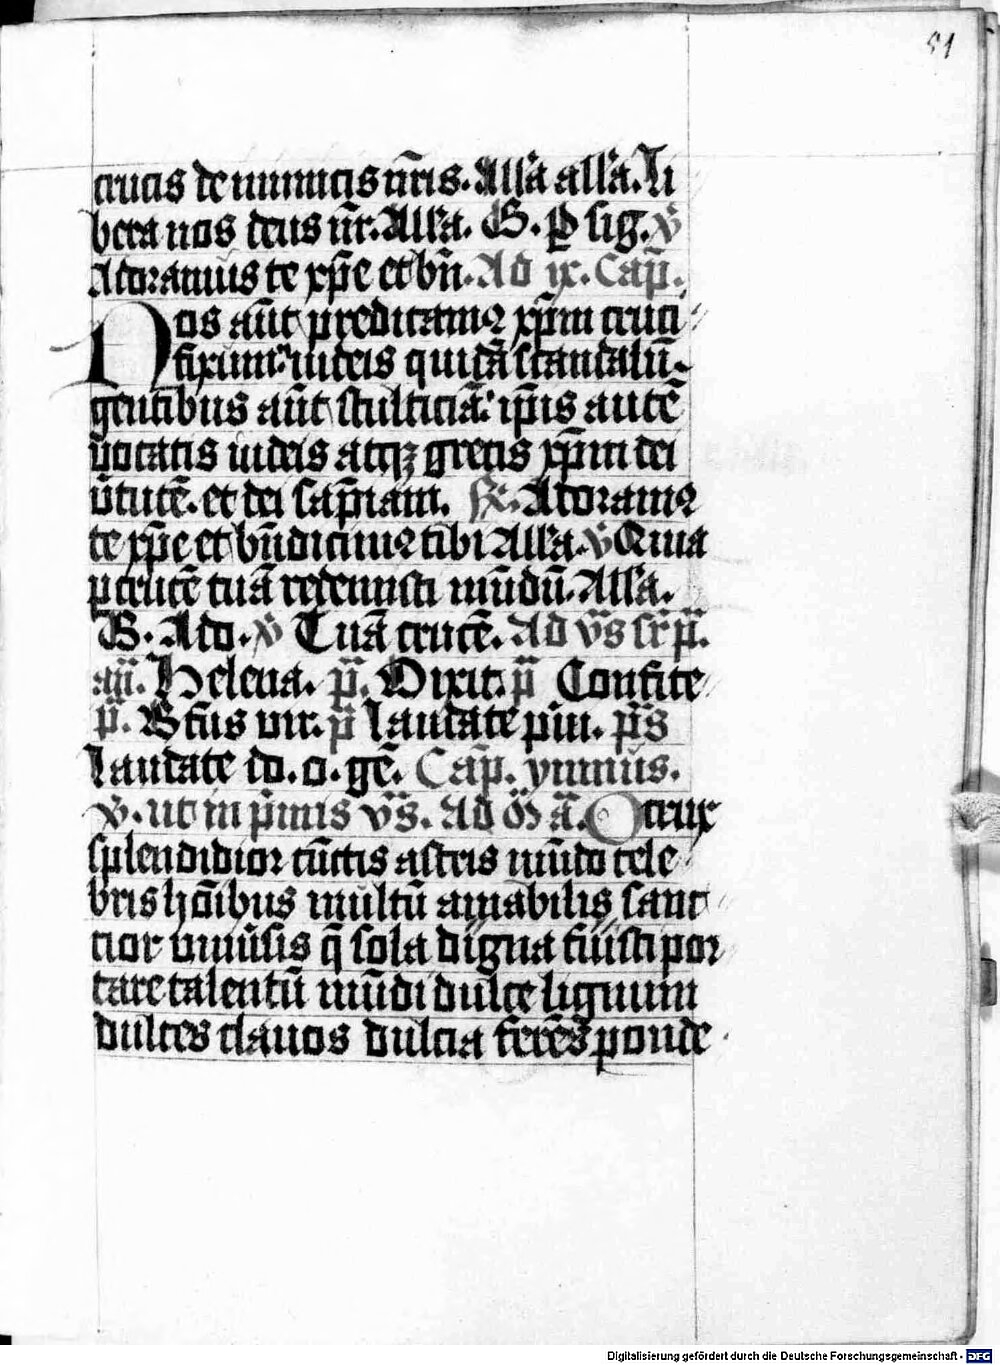 51
crucis de inimicis nr̄is. All'a all'a. Li
bera nos deus nr̄. All'a. G. P sig. v̄
Adoramus te xp̄e et bn̄. Ad ix. Cap̄.
Nos aūt predicamꝰ xp̄m cruci
fixum: iudeis quidā scandalū.
gentibus aūt stulticiā: ip̄is autē
vocatis iudeis atqꝫ grecis xp̄m dei
v̄tutē. et dei sap̄iam. R̄. Adoramꝰ
te xp̄e et bn̄dicimꝰ tibi All'a. v̄ Quia
p crucē tuā redemisti mūdū. All'a.
B. Ado. v̄ Tuā crucē. Ad vs̄ sr̄ p̄.
añ. Helena. p̄. Dixit. p̄ Confite
p̄. Btūs vir. p̄ Laudate pūi. p̄s
Laudate do. o. gē. Cap̄. ymnus.
v̄. ut in p̄mis vs̄. Ad M ā. O crux
splendidior cūctis astris mūdo cele
bris hoībus multū amabilis sanc
tior uniūsis q̄ sola digna fuisti por
tare talentū mūdi dulce lignum
dulces clauos dulcia ferēs ponde
Digitalisierung gefördert durch die Deutsche Forschungsgemeinschaft - DFG